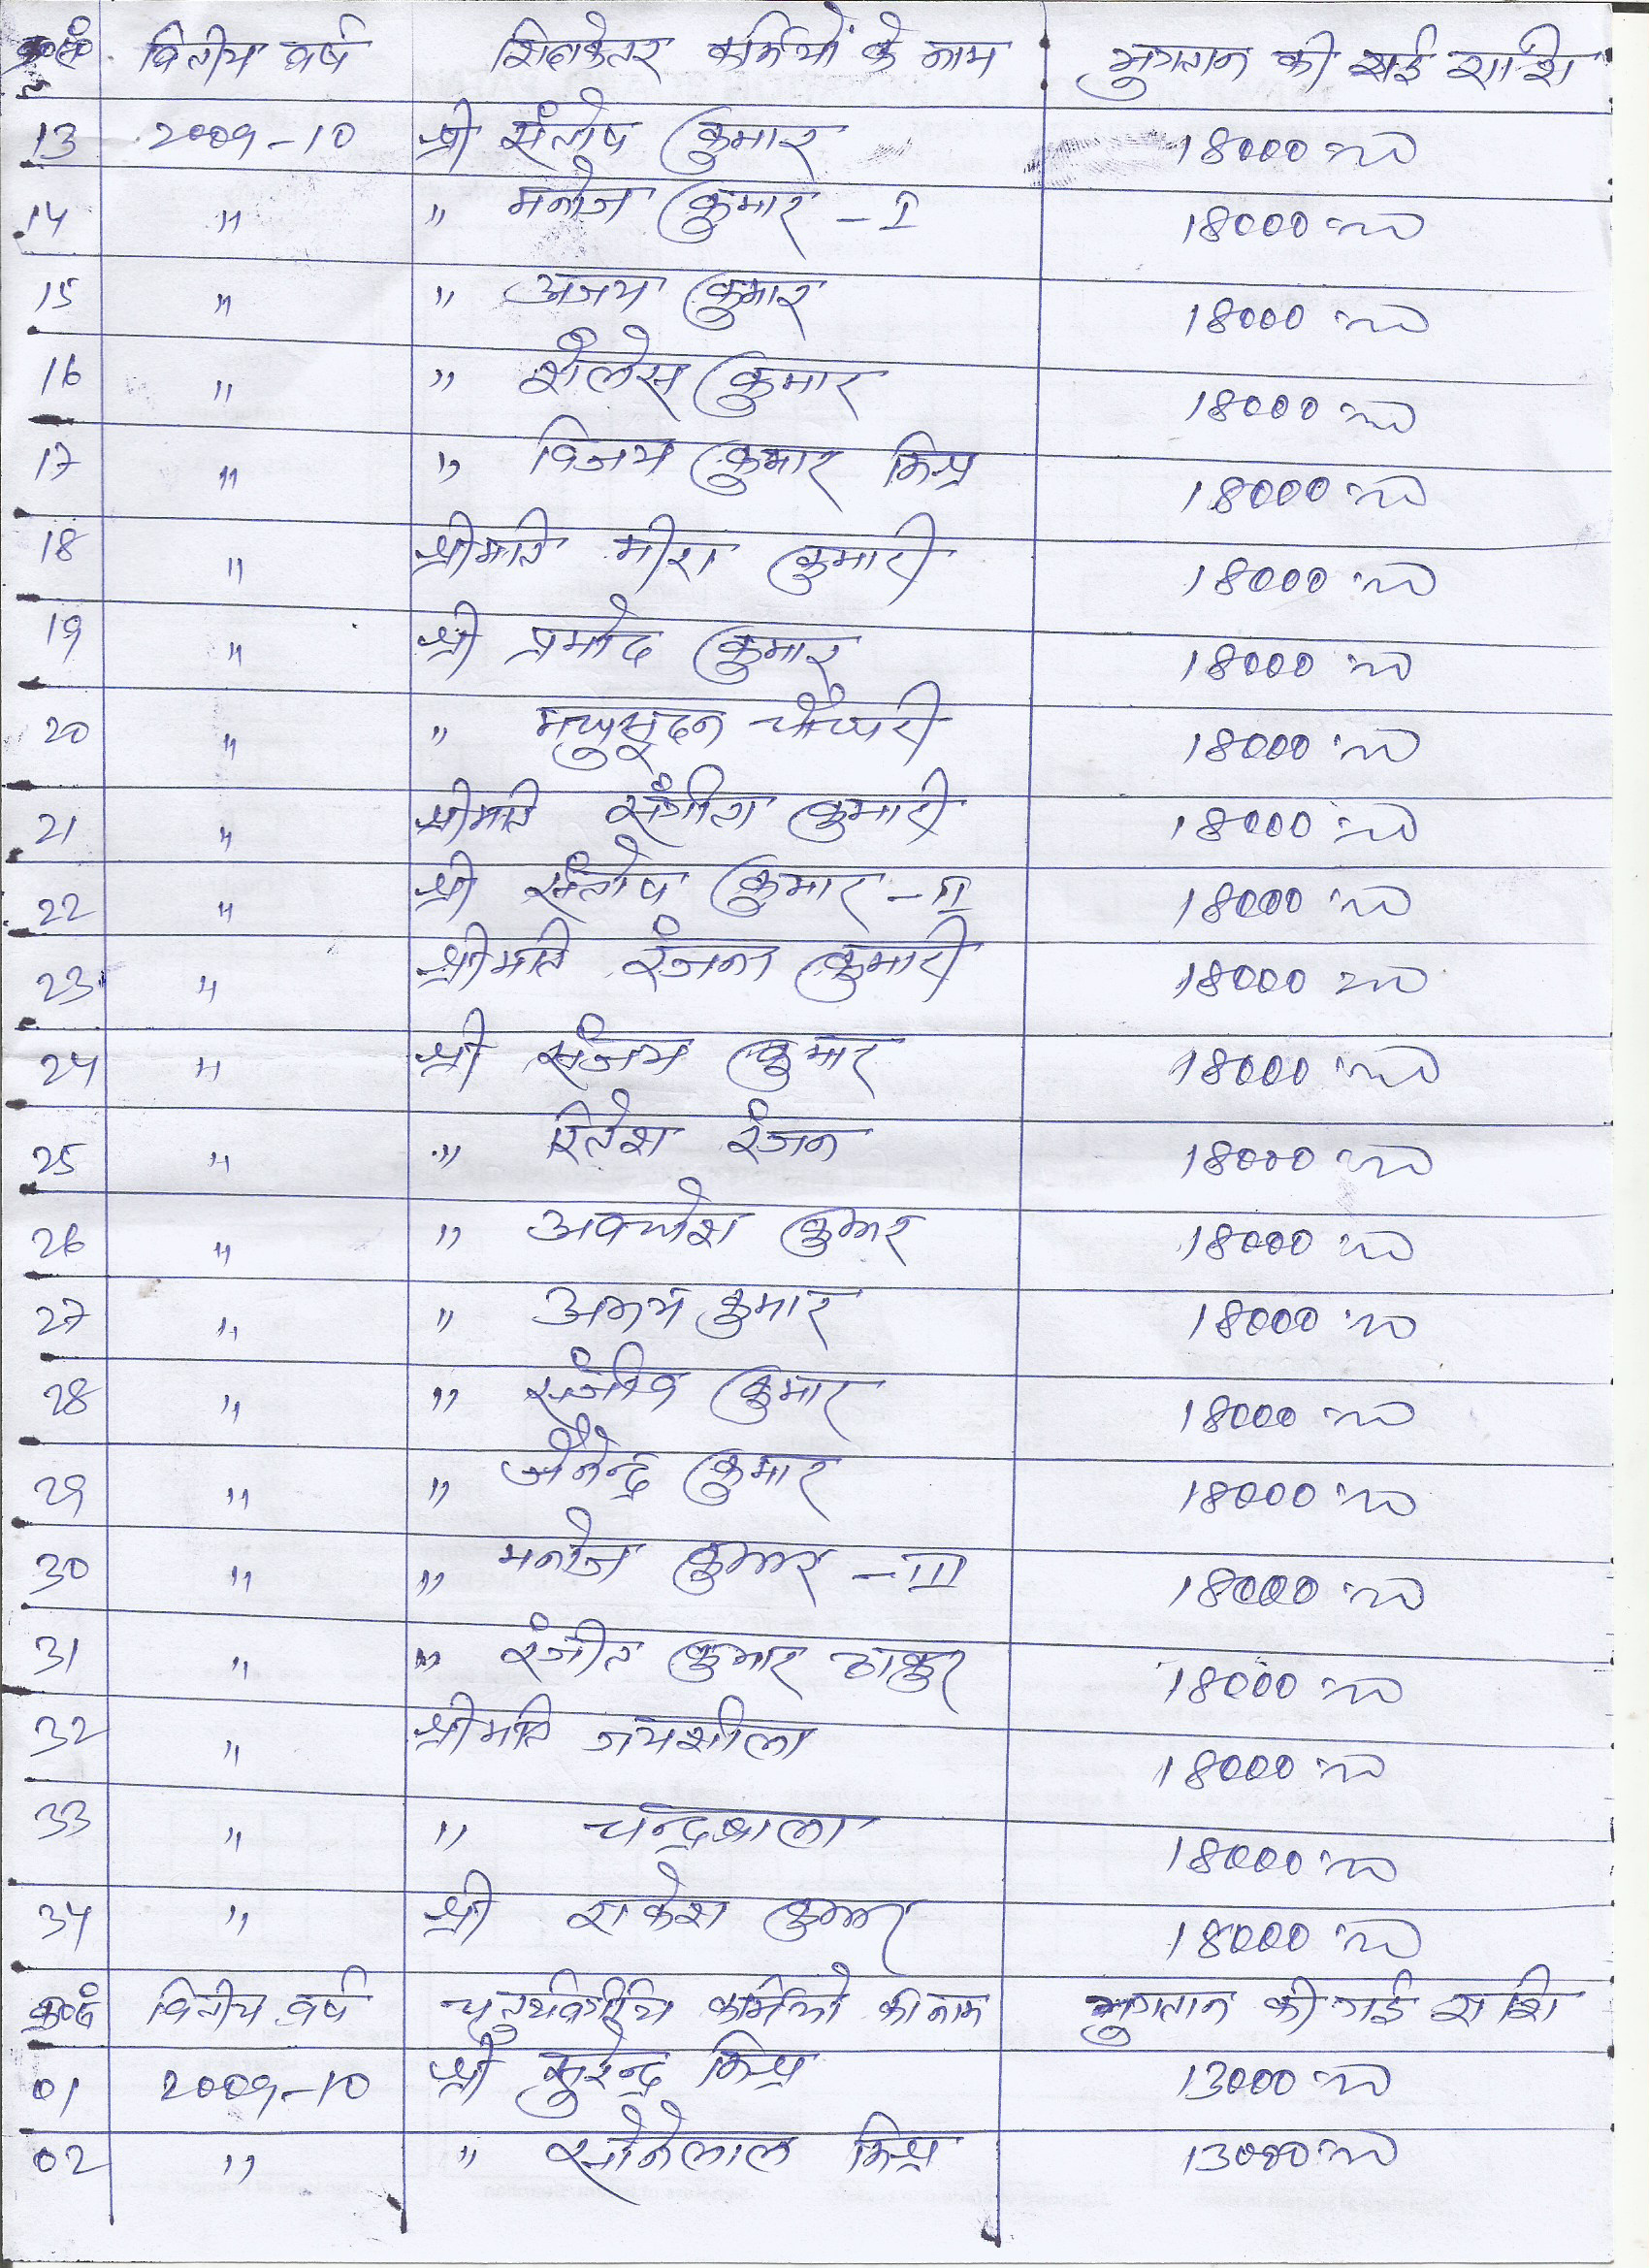 क्र०सं० वित्तीय वर्ष शिक्षकेतर कर्मियों के नाम भुगतान की गई राशि
13 2009-10 श्री संतोष कुमार 18000=00
14 " " मनोज कुमार - I 18000=00
15 " " अजय कुमार 18000=00
16 " " शैलेस कुमार 18000=00
17 " " विजय कुमार मिश्र 18000=00
18 " श्रीमति मीरा कुमारी 18000=00
19 " श्री प्रमोद कुमार 18000=00
20 " " मधुसूदन चौधरी 18000=00
21 " श्रीमति संगीता कुमारी 18000=00
22 " श्री संतोष कुमार - II 18000=00
23 " श्रीमति रंजना कुमारी 18000=00
24 " श्री संजय कुमार 18000=00
25 " " रितेश रंजन 18000=00
26 " " अवधेश कुमार 18000=00
27 " " अभय कुमार 18000=00
28 " " संजीव कुमार 18000=00
29 " " जैनेन्द्र कुमार 18000=00
30 " " मनोज कुमार - III 18000=00
31 " " रंजीत कुमार ठाकुर 18000=00
32 " श्रीमति जयशीला 18000=00
33 " " चन्द्रशाला 18000=00
34 " श्री राकेश कुमार 18000=00
क्र०सं० वित्तीय वर्ष चतुर्थवर्गीय कर्मियों की नाम भुगतान की गई राशि
01 2009-10 श्री सुरेन्द्र मिश्र 13000=00
02 " " सोनेलाल मिश्र 13000=00